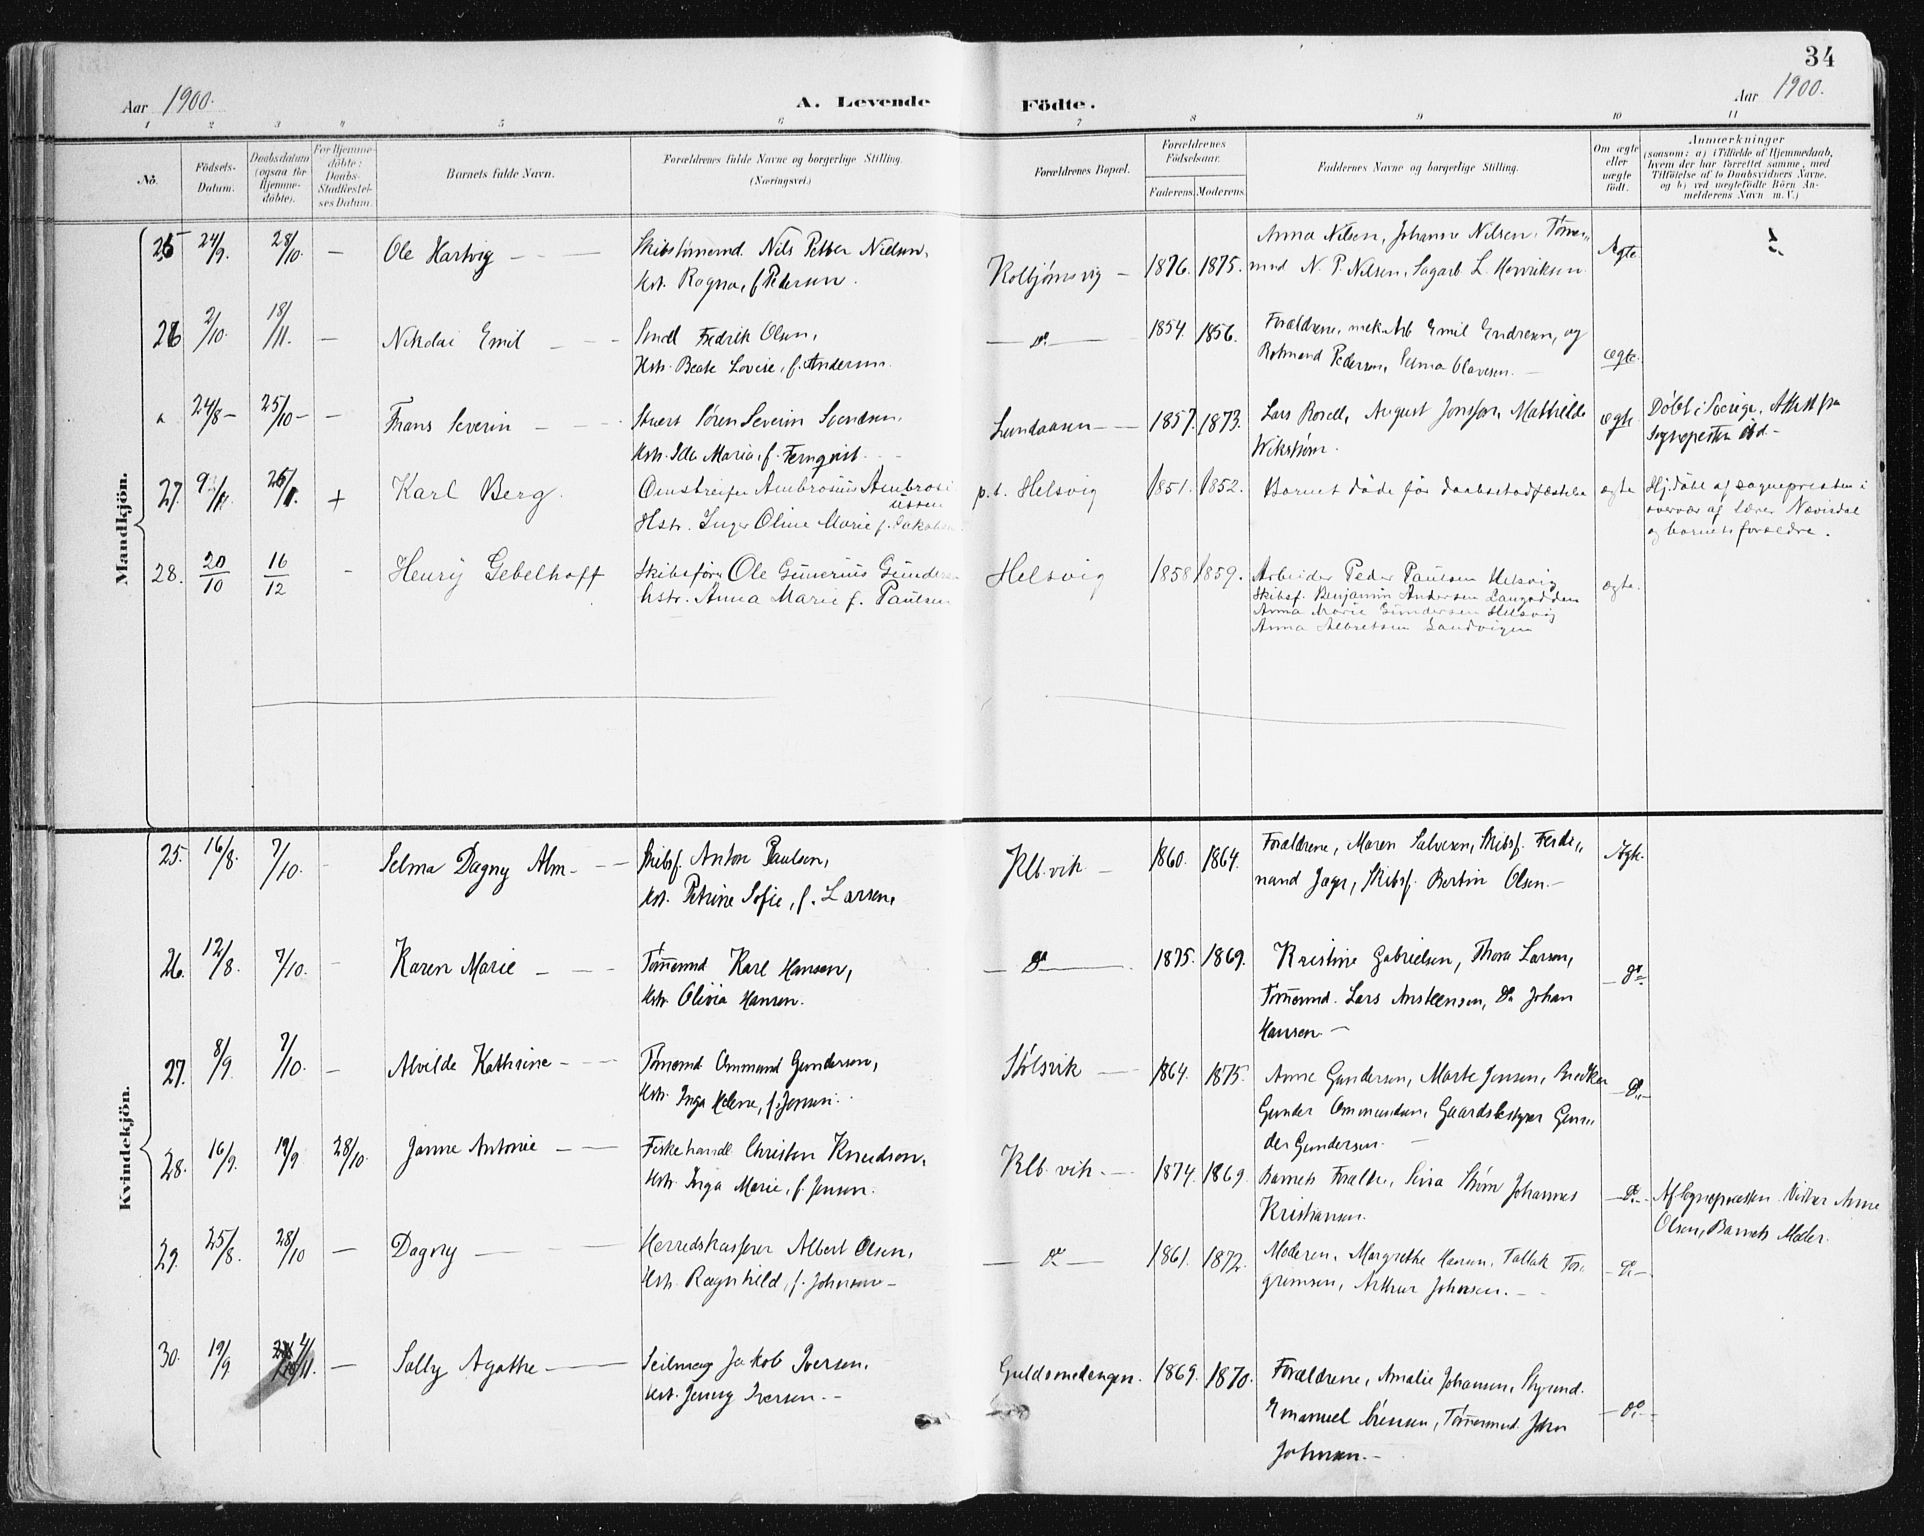 34
Aar 1900. A. Levende Födte. Aar 1900.
1 2 3 4 5 6 7 8 9 10 11
No. Födsels-Datum. Daabsdatum (ogsaa for Hjemme-döbte). For Hjemme-döbte: Daabs-Stadfæstel-ses Datum. Barnets fulde Navn. Forældrenes fulde Navne og borgerlige Stilling. (Næringsvei.) Forældrenes Bopæl. Forældrenes Födselsaar. Faderens. Moderens. Faddernes Navne og borgerlige Stilling. Om ægte eller uægte födt. Anmærkninger
(saasom: a) i Tilfælde af Hjemmedaab, hvem der har forrettet samme, med Tilföielse af to Daabsvidners Navne, og b) ved uægtefödte Börn Anmelderens Navn m. V.)
Mandkjön.
25 24/9. 28/10. — Ole Hartvig — Nils Petter Nielsen, Kolbjørnsvig — 1876. 1875. Anna Nilsen, Johanne Nilsen, Tømer,,
Hst. Ragna, f. Pedersen. mnd N. P. Nilsen, L. Henriksen Ægte
26 2/10. 18/11. — Nikolai Emil — Fredrik Olsen, — Do — 1854. 1856. Forældrene, mek. Arb Emil Endresen, og
Hstr. Beate Lovise, f. Andersen. Pedersen, Selma Olavesen. — ægte.
24/8 — 25/10 — — Frans Severin — Søren Severin Svendsen, Lundaasen — 1857. 1873. Lars August Jonsson, Mathilde ægte Døbt i Sverige, Attest fra
Hstr. Ida Maria, f. Fernqvist. Wikstrøm. Sognepresten ibd. -
27. 9/11. + Karl Berg. Omstreifer Ambrosius Ambrosi
ussen p.t. Helsvig 1851. 1852. Barnet døde før daabsstadfæstelse ægte Hj. døbt af sognepresten i
Hstr. Inger Oline Marie f. Jakobsen overvær af Lærer Nævisdal
og barnets forældre.
28. 20/10 16/12 - Henry Gebelhoff Skibsfører Ole Gunerius Gunders Helsvig 1858 1859. Arbeider Peder Paulsen Helsvig ægte.
hstr. Anna Marie f. Paulsen Skibsf. Benjamin Andersen
Anna Marie Gundersen Helsvig
Anna Albretsen Sandvigen
Kvindekjön.
25. 16/8. 7/10. - Selma Dagny Alm — Skibsf. Anton Paulsen, Klb. vik — 1860. 1864. Forældrene, Maren Salvesen, Skibsf. Ferdi,, Ægte.
Hst. Petrine Sofie, f. Larsen, nand Jager, Skibsf. Bertin Olsen. —
26. 12/8. 7/10. - Karen Marie — Tømmermd Karl Hansen, — Do — 1875. 1869. Kristine Gabrielsen, Thora Larsen, — Do —
Hstr. Olivia Hansen. Tømmermd. Lars Anstensen, Do Johan
Hansen. —
27. 8/9. 7/10. — Alvilde Kathrine — Tømermd Ommund Gundersen, Stølsvik — 1864. 1875. Anne Gundersen, Marte Jensen, — Do —
Hstr. Inga Helene, f. Jensen. Gunder Ommundsen, Gaardsbestyrer Gun,,
der Gundersen. —
28. 16/9. 19/9 28/10. Janne Antonie — Fiskehandl. Christen Knudsen, Klb. vik. — 1874. 1869. Barnets Forældre, Sina Strøm Johannes — Do — Af Sognepresten. Vidner Anne
Hstr. Inga Marie, f. Jensen. Kristiansen. Olsen, Barnets Moder.
29. 25/8. 28/10 — Dagny — Herredskasserer Albert Olsen, — Do — 1861. 1872. Moderen, Margrethe Hansen, Tallak Tor, — Do —
Hstr. Ragnhild, f. Johnsen — grimsen, Arthur Johnsen. —
30. 19/9. 4/11. — Sally Agathe — Seilmag Jakob Iversen, Guldsmedengen. 1869. 1870. Forældrene, Amalie Johansen, Styrmd. — Do —
Hst. Jenny Iversen. — Emanuel Tømmermd. John
Johnsen. —